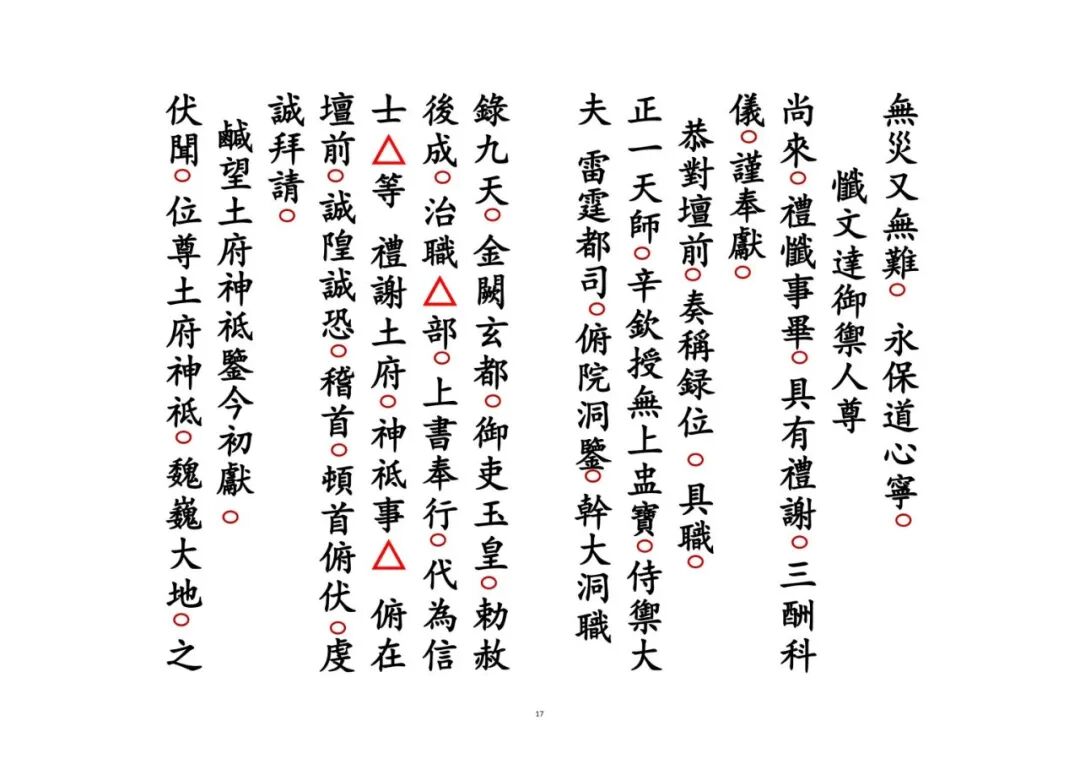 無災又無難○　永保道心寧○
懺文達御禦人尊
尚來○禮懺事畢○具有禮謝○三酬科
儀○謹奉獻○
恭對壇前○奏稱録位○具職○
正一天師○辛欽授無上盅寶○侍禦大
夫　雷霆都司○俯院洞鑒○幹大洞職
錄九天○金闕玄都○御吏玉皇○勅赦
後成○治職△部○上書奉行○代為信
士△等　禮謝土府○神祇事△　俯在
壇前○誠隍誠恐○稽首○頓首俯伏○虔
誠拜請○
鹹望土府神祗鑒今初獻○
伏聞○位尊土府神祗○魏巍大地○之
17